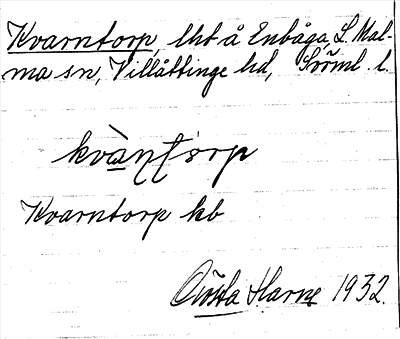 Kvarntorp, lht å Enbåga, L. Mal-
ma sn, Villåttinge hd, Söml. l.
Kvarntorp kb
Harne 1932.